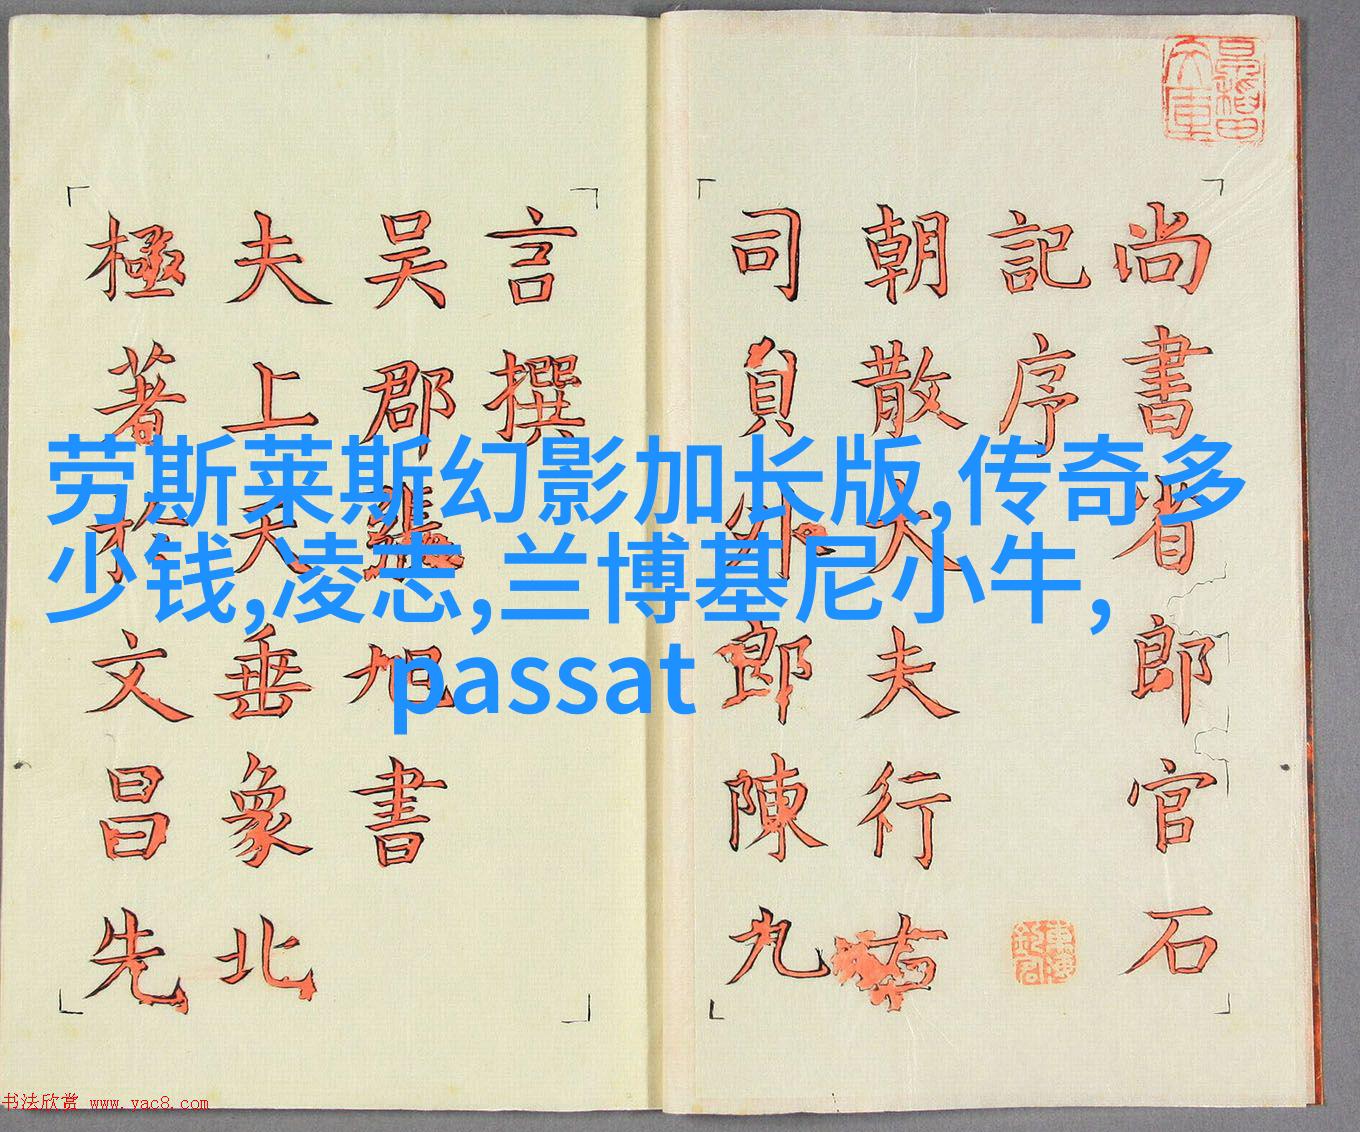 尚書省郎官石
記序
朝散大夫行右
司員外郎陳九
言撰
吴郡張旭書
夫上天垂象北
極著於文昌先
劳斯莱斯幻影加长版,传奇多
少钱,凌志,兰博基尼小牛,
passat
书法欣赏 www.yac8.com